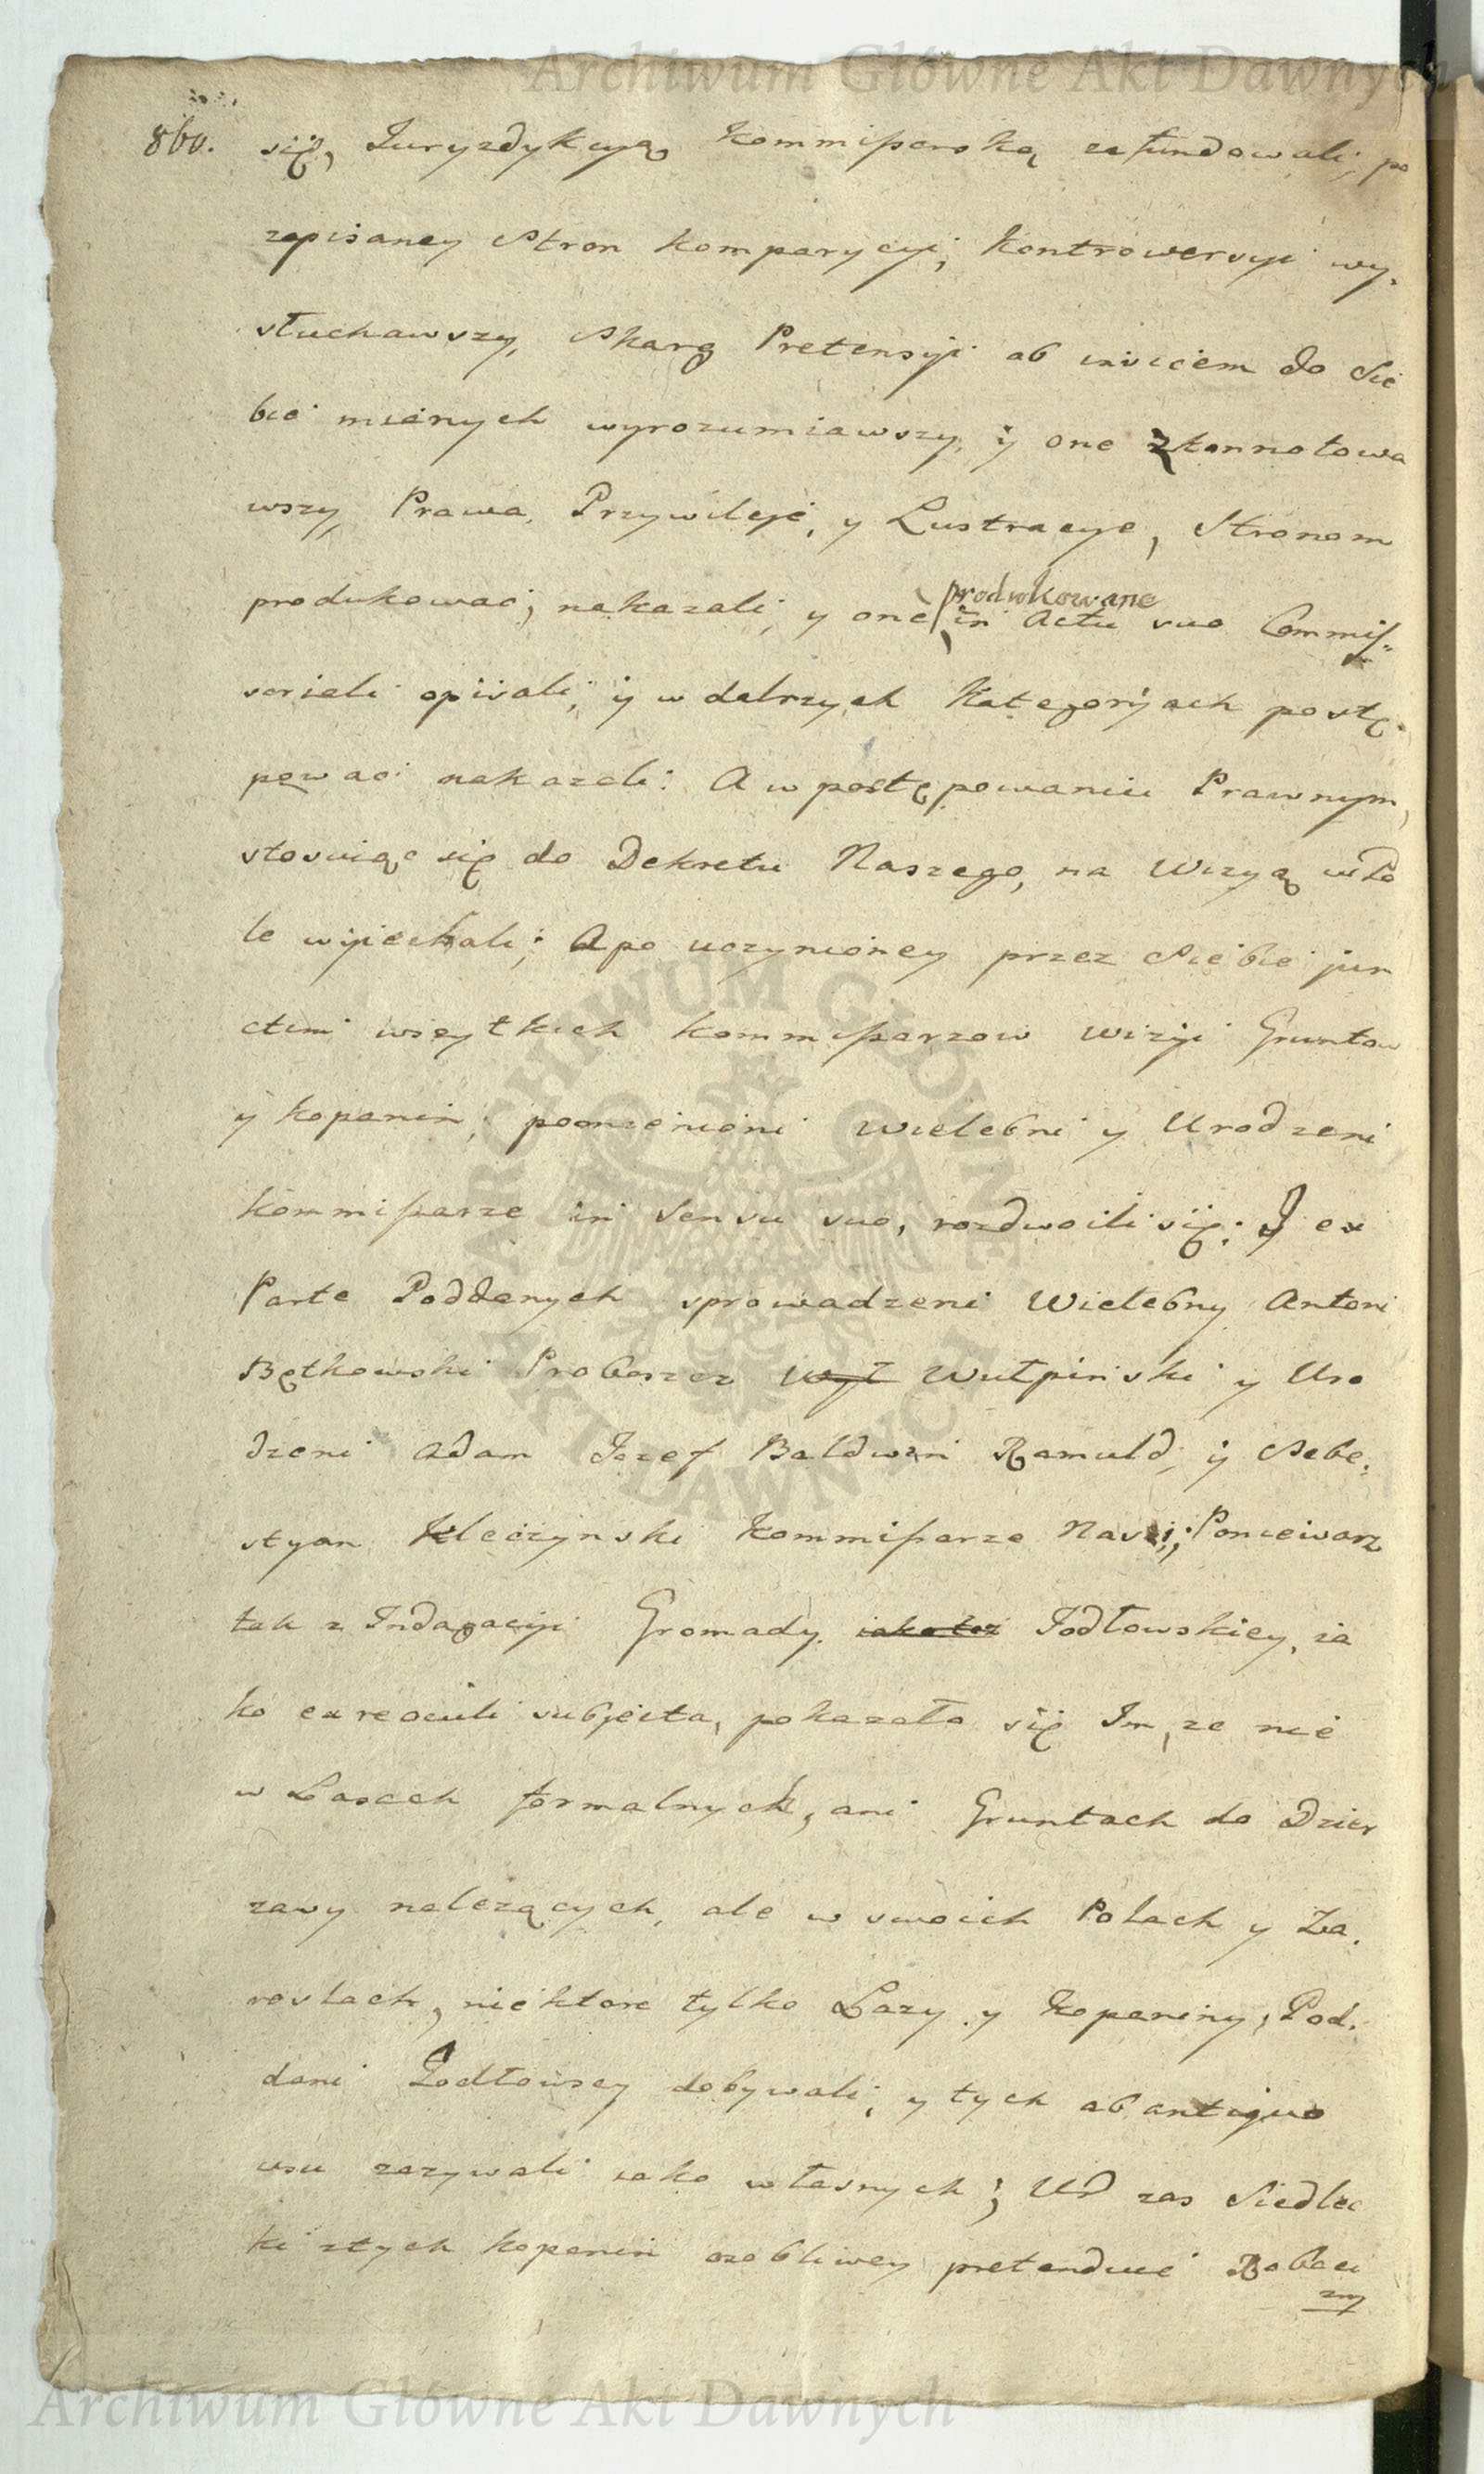 Archiwum Główne Akt Dawnych
860.
się, Juryzdykcyą Kommissarską zafundowali, po
zapisaney Stron Komparycyi, Kontrowersyi wy,
słuchawszy, Skarg Pretensyi ab invicem do Sie
bie mianych wyrozumiawszy, y one zkonnotowa
wszy, Prawa, Przywileje, y Lustracye, Stronom
produkować, nakazali, y one produkowane in Actu suo Commis=
soriali opisali, y w dalszych Kategoryach postę.
pować nakazali: A w postępowaniu Prawnym,
stosuiąc się do Dekretu Naszego, na Wizyą w Po
le wyiechali; A po uczynioney przez Siebie jun
ctim wszytkich Kommissarzow Wizyi Gruntow
y kopanin, pomienieni Wielebni y Urodzeni
Kommissarze in Sensu suo, rozdwoili się: J ex
Parte Poddanych sprowadzeni Wielebny Antoni
Bętkowski Proboszcz Wyl Wulpiński y Uro
dzeni Adam Jozef Baldwin Ramuld, y Seba,
styan Kleczynski Kommissarze Nasi; Poniewarz
tak z Indagacyi Gromady iako też Jodłowskiey, ia
ko ex reoculi subjecta, pokazało się Im, ze nie
w Lasach formalnych, ani Gruntach do Dzier
zawy nalezących, ale w swoich Polach y Za,
roslach, niektore tylko Łazy y Kopaniny, Pod,
dani Jodłowscy dobywali, y tych ab antiquo
usu zazywali iako własnych; UD zas Siedlec
ki z tych kopanin osobliwey pretenduie Roboci
zny
ARCHIWUM GŁÓWNE AKT DAWNYCH
Archiwum Główne Akt Dawnych